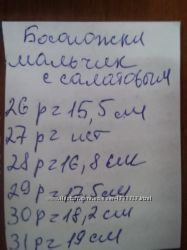 Босоножки
мальчик
с салатовым
26 р = 15,5 см
27 р = нет
28 р = 16,8 см
29 р = 17,5 см
30 р = 18,2 см
31 р = 19 см